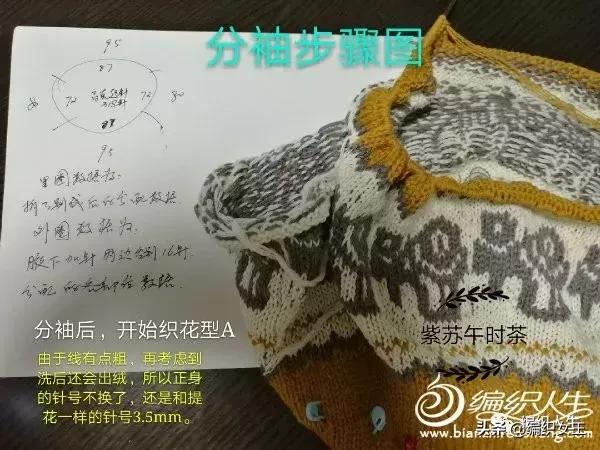 分袖步骤图
95
87
72
72
80
95
里圈数据为:
拆了别线后的分配数据
外圈数据为.
腋下加针两边合到16针.
分袖后，开始织花型A
由于线有点粗，再考虑到
洗后还会出绒，所以正身
的针号不换了，还是和提
花一样的针号3.5mm。
紫苏午时茶
编织人生
头条@编织女王